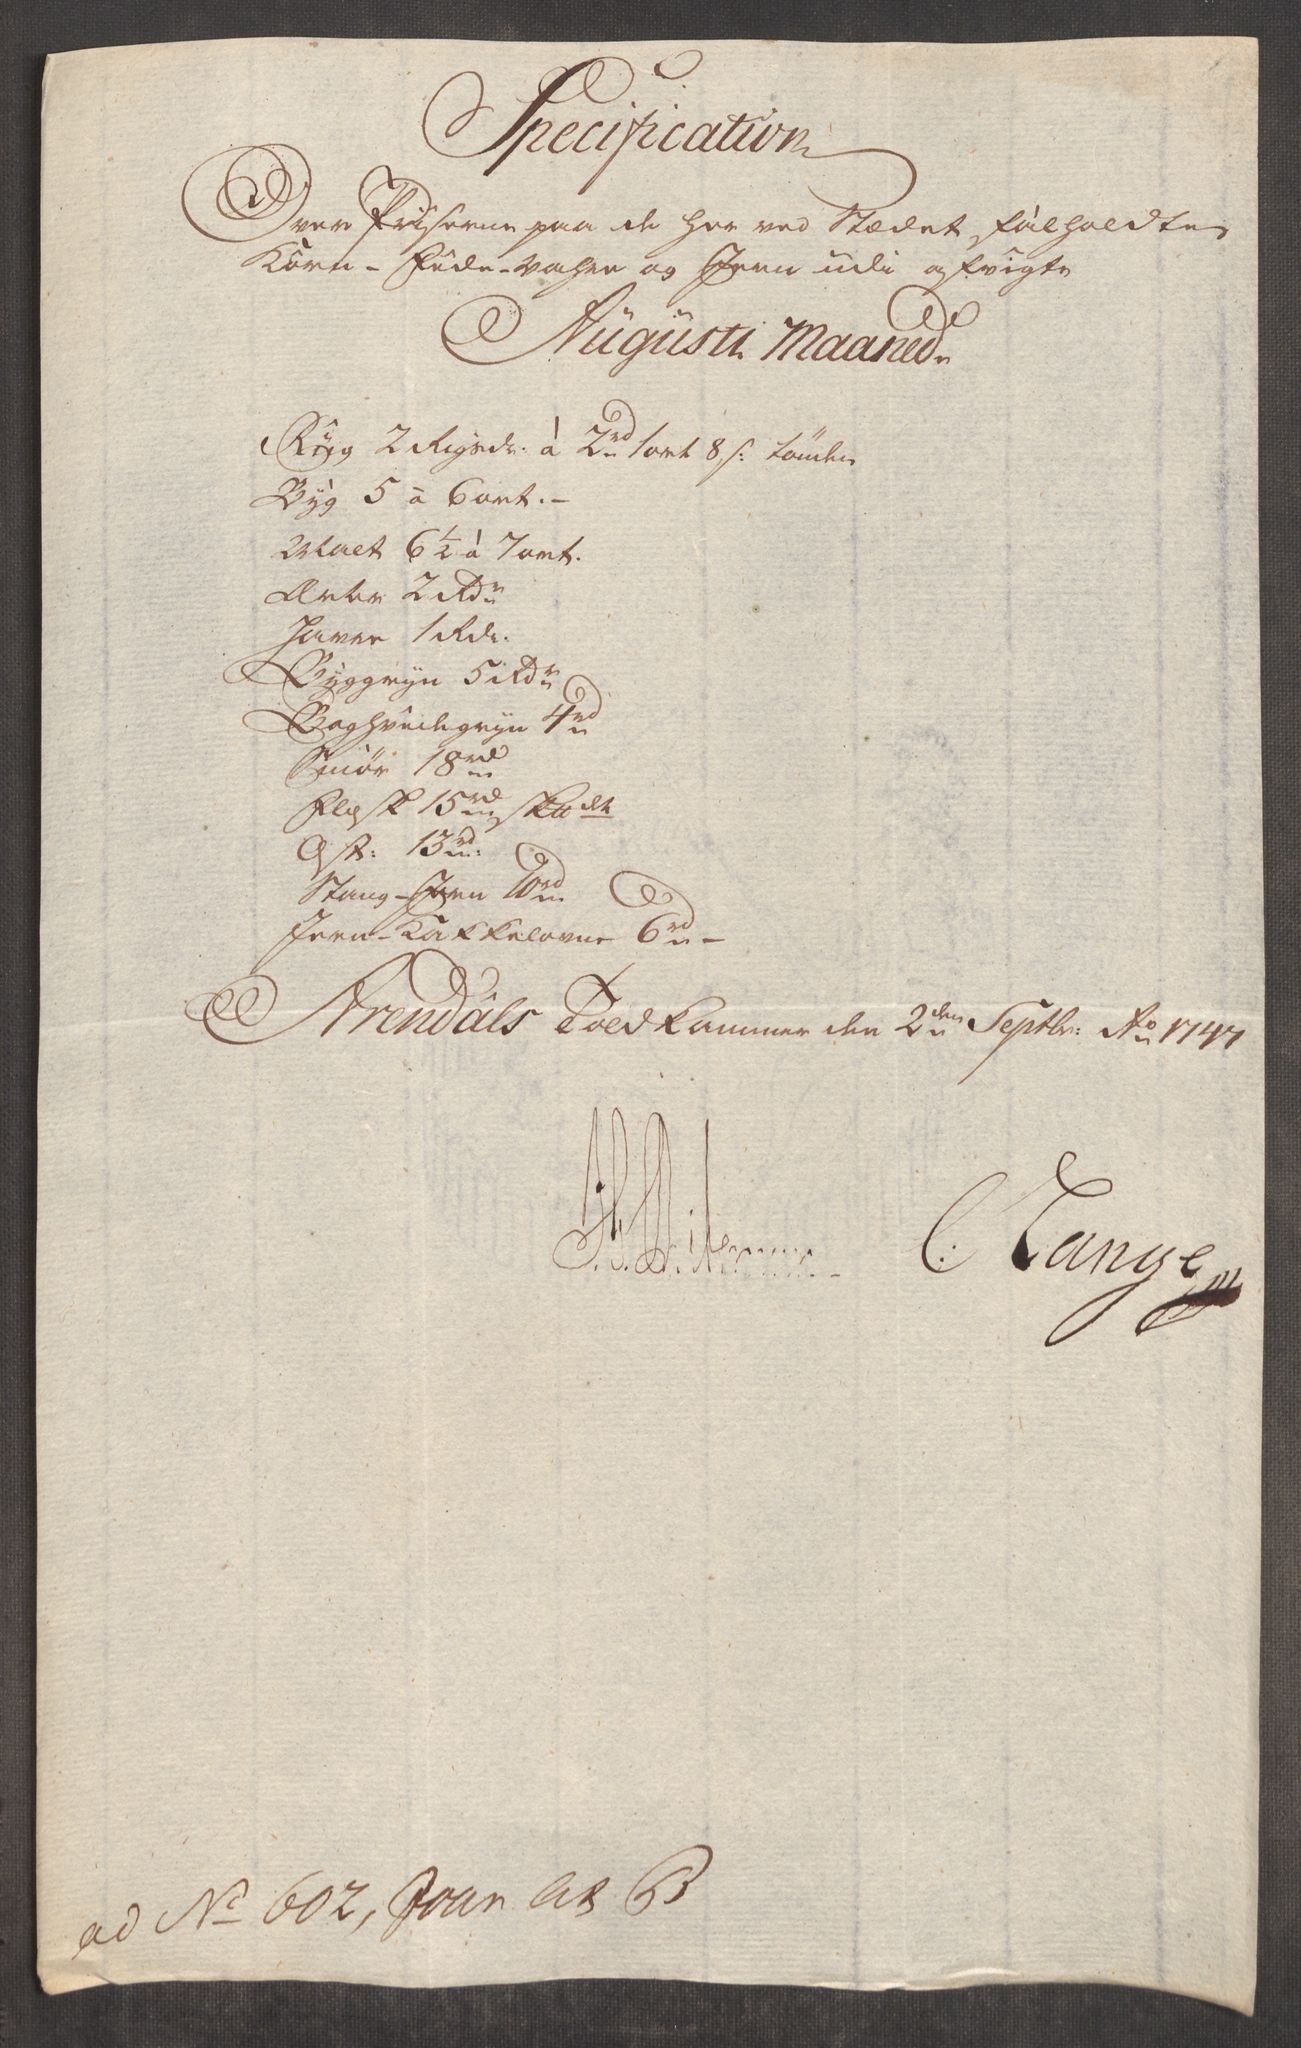 Specification
Over Priserne paa de her ved Stædet falholdte
Korn- Föde-Vahre og Jern udi afvigte
Augusti Maaned.
Rüg 2 Rigsdr. à 2 rd 1 ort 8 s: tönden
Byg 5 à 6 ort.-
Malt 6½ à 7 ort.
Erter 2 Rdr
Haver 1 Rdr.
Byggryn 5 Rdr
Boghvedegryn 4 rd
Smör 18 rd
Flesk 15 rd
Ost: 13 rd:
Stang-Jern 10 rd
Jern-Kakkelovne 6 rd-
Arendals Told Kammer den 2den Septbr: Ao 1747
C: Lange
ad No 602, Jour Lit B